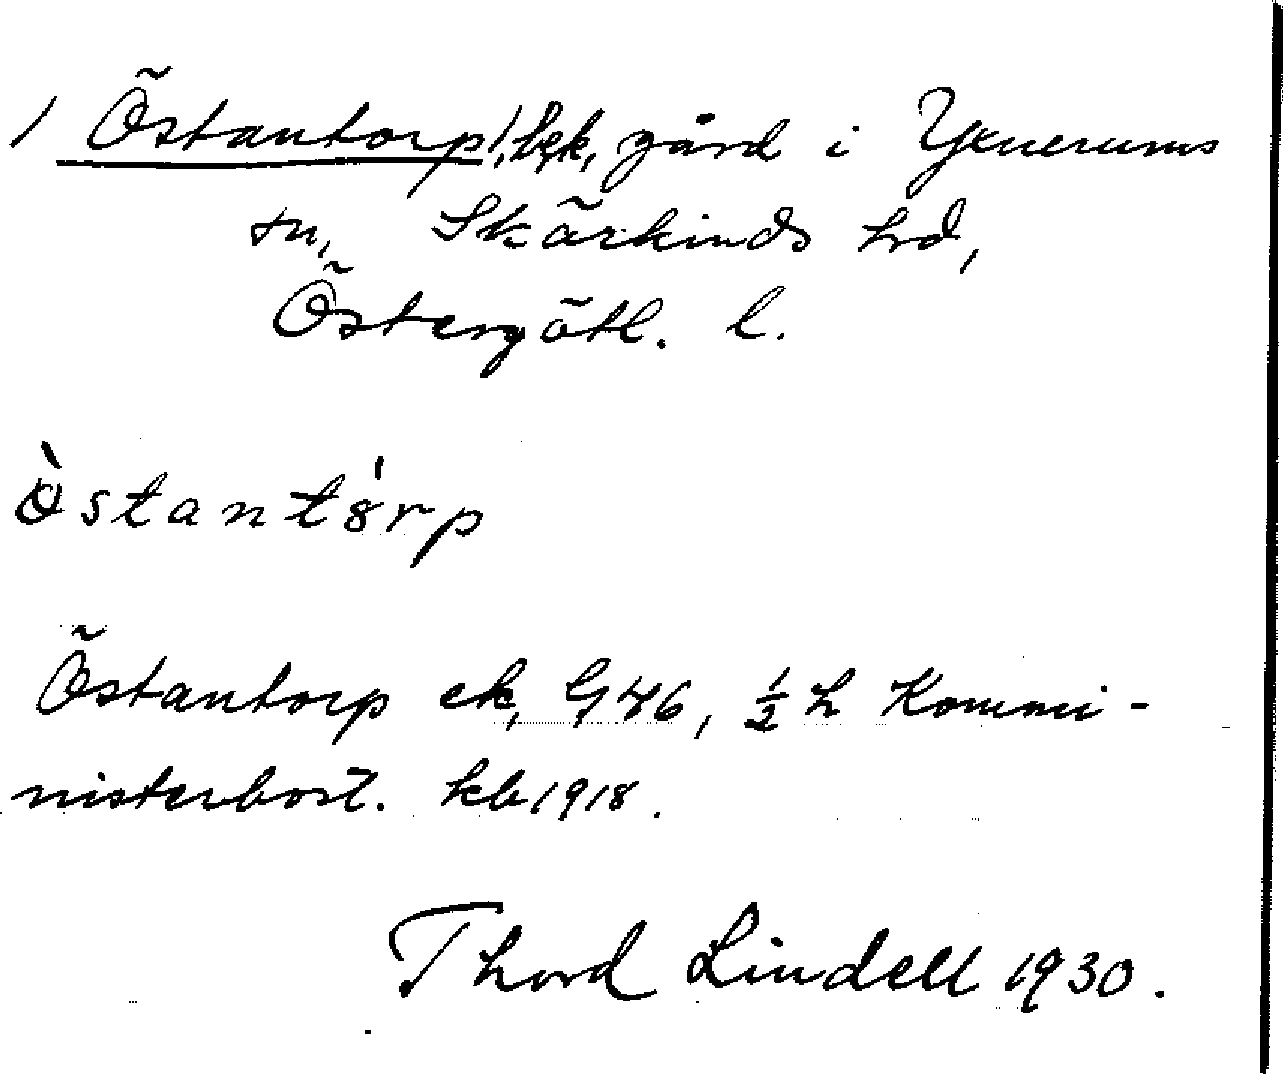 / Östantorp/, bek, gård i Yxnerums
sn, Skärkinds hrd,
Östergötl. l.
Òstantórp
Östantorp ek, G 46, 1/2 h Kommi-
nisterbost. kb 1918.
Thord Lindell 1930.